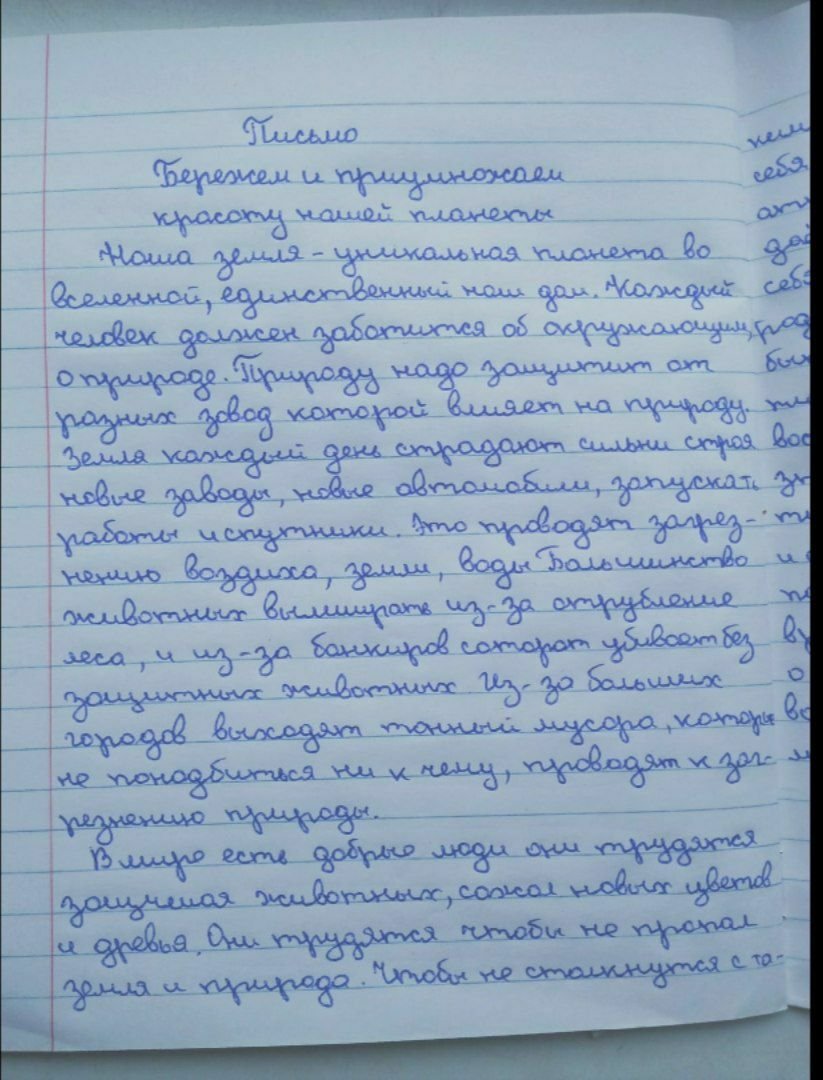 Письмо
Бережем и приумножаем
красоту нашей планеты
Наша земля - уникальная планета во
вселенной, единственный наш дом. Каждый
человек должен заботится об окружающим,
о природе. Природу надо защитит от
разных завод которой влияет на природу.
Земля каждый день страдают сильни строя
новые заводы, новые автомобили, запускать
работы и спутники. Это проводят загрез-
нению воздиха, земли, воды Большинство
животных вымирать из-за отрубление
леса, и из-за банкиров которот убивает без
защитных животных. Из-за больших
городов выходят тонный мусора, которые
не понадбиться ни к чему, проводят к заг-
резнению природы.
В мире есть добрые люди они трудятся
защищая животных, сажая новых цветов
и древья. Они трудятся чтобы не пропал
земля и природа. Чтобы не столкнутся с та-
себя